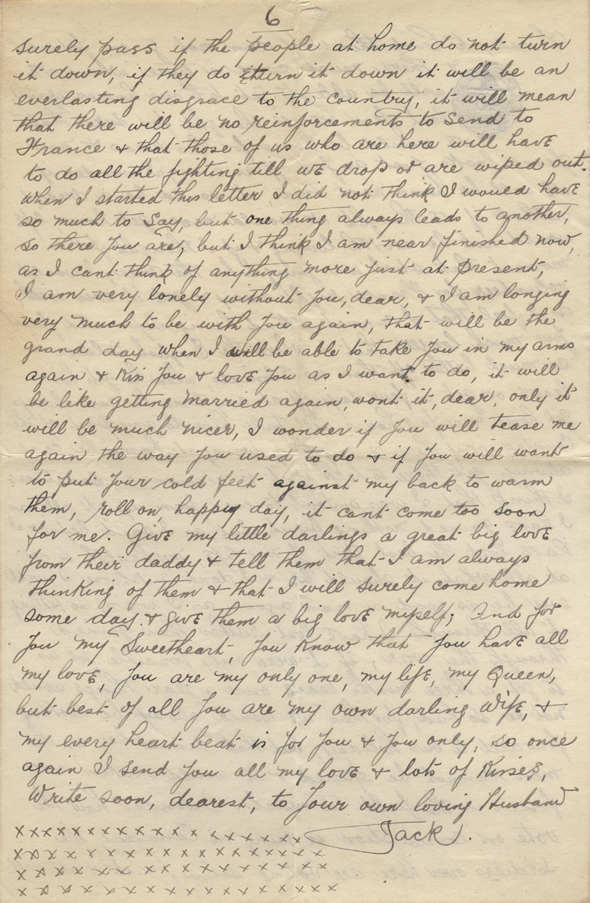 6
surely pass if the people at home do not turn
it down, if they do turn it down it will be an
everlasting disgrace to the country, it will mean
that there will be no reinforcements to send to
France & that those of us who are here will have
to do all the fighting till we drop or are wiped out.
When I started this letter I did not think I would have
so much to say, but one thing always leads to another,
so there you are, but I think I am near finished now,
as I cant think of anything more just at present,
I am very lonely without you, dear, & I am longing
very much to be with you again, that will be the
grand day when I will be able to take you in my arms
again & kiss you & love you as I want to do, it will
be like getting married again, wont it, dear, only it
will be much nicer, I wonder if you will tease me
again the way you used to do & if you will want
to put your cold feet against my back to warm
them, roll on happy day, it cant come too soon
for me. Give my little darlings a great big love
from their daddy & tell them that I am always
thinking of them & that I will surely come home
some day & give them a big love myself; And for
you my Sweetheart, you know that you have all
my love, you are my only one, my life, my Queen,
but best of all you are my own darling Wife, &
my every heart beat is for you & you only, so once
again I send you all my love & lots of Kisses,
Write soon, dearest, to your own loving Husband
Jack.
x x x x x x x x x x x x x x x x x x
x x x x x x x x x x x x x x x x x x
x x x x x x x x x x x x x x x x x x
x x x x x x x x x x x x x x x x x x